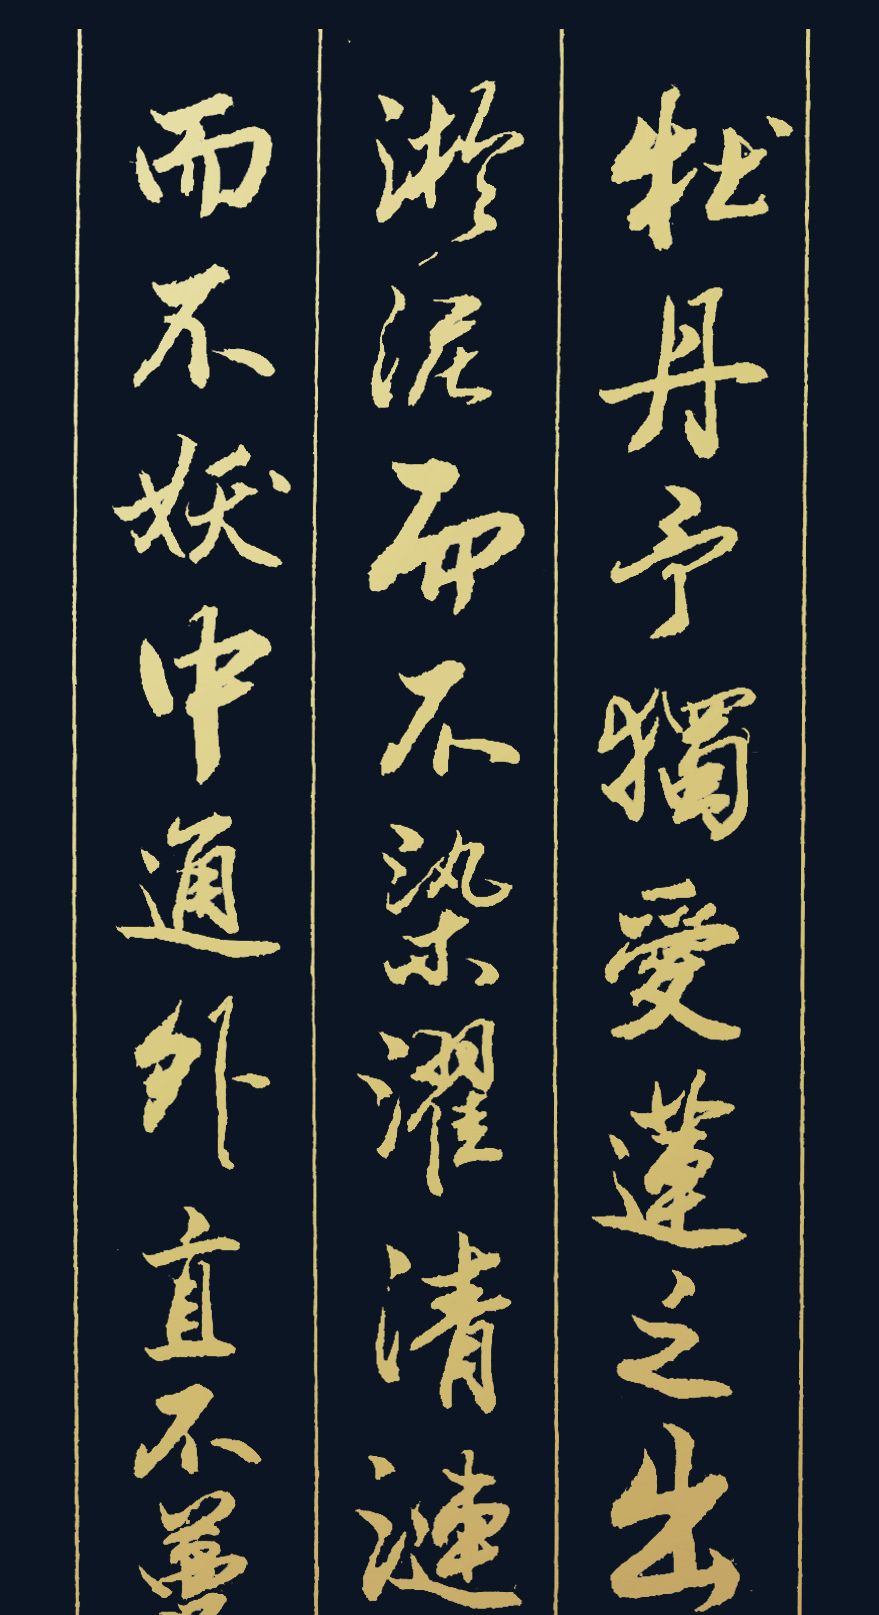 牡丹予獨愛蓮之出
淤泥而不染濯清漣
而不妖中通外直不蔓